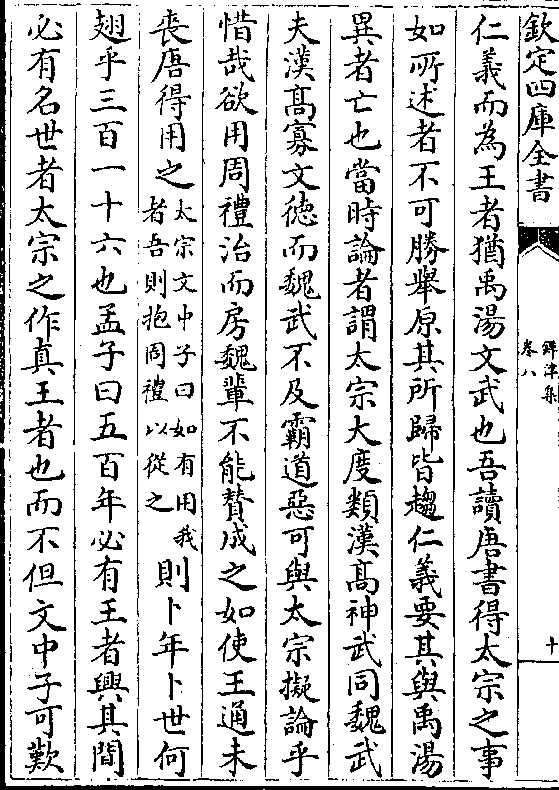 欽定四庫全書
鐔津集
卷八
十
仁義而為王者猶禹湯文武也吾讀唐書得太宗之事
如所述者不可勝舉原其所歸皆趨仁義要其與禹湯
異者亡也當時論者謂太宗大度類漢髙神武同魏武
夫漢髙寡文徳而魏武不及霸道惡可與太宗擬論乎
惜哉欲用周禮治而房魏輩不能賛成之如使王通未
喪唐得用之太宗文中子曰如有用我者吾則抱周禮以從之則卜年卜世何
翅乎三百一十六也孟子曰五百年必有王者興其間
必有名世者太宗之作真王者也而不但文中子可歎